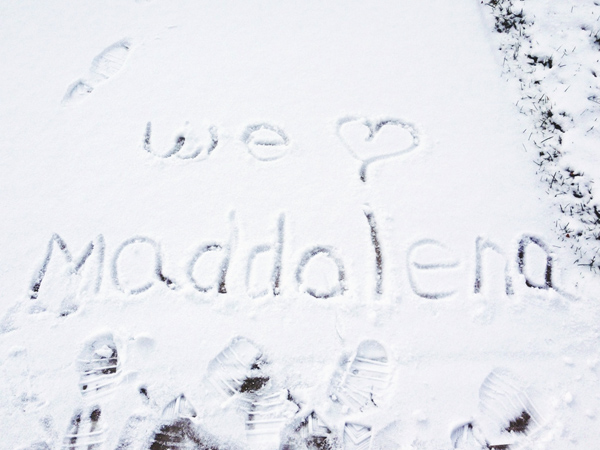 we ♡
Maddalena